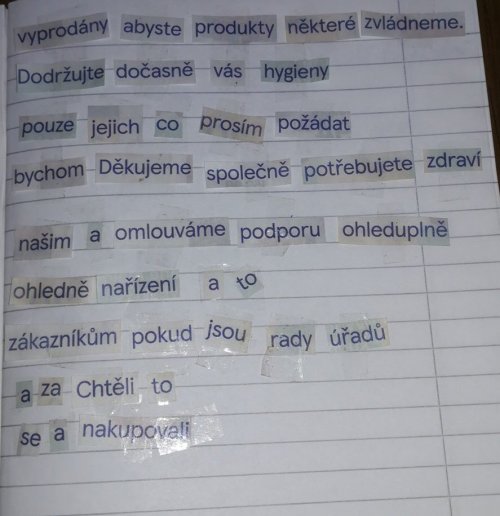 vyprodány abyste produkty některé zvládneme.
Dodržujte dočasně vás hygieny
pouze jejich co prosím požádat
bychom Děkujeme společně potřebujete zdraví
našim a omlouváme podporu ohleduplně
ohledně nařízení a to
zákazníkům pokud jsou rady úřadů
a za Chtěli to
se a nakupovali